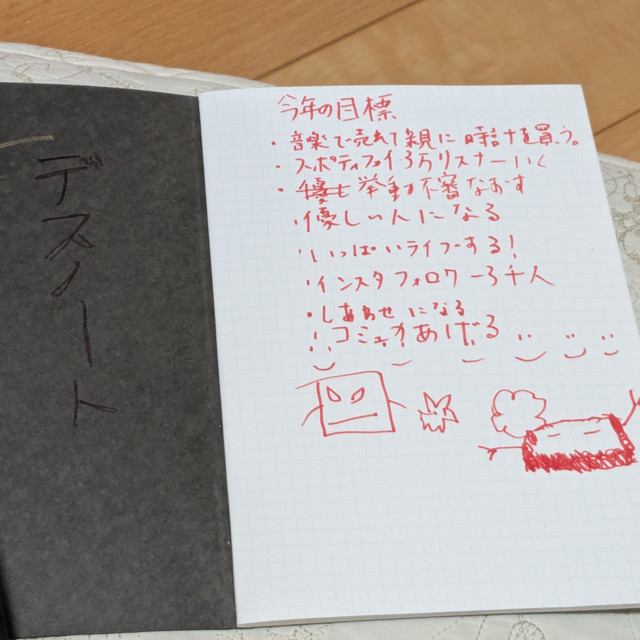 デスノート
今年の目標
・音楽で売れて親に時計を買う。
・スポティファイ3万リスナーいく
・挙動不審なおす
・優しい人になる
・いっぱいライブする！
・インスタフォロワー3千人
・しあわせになる
・コミュ力あげる